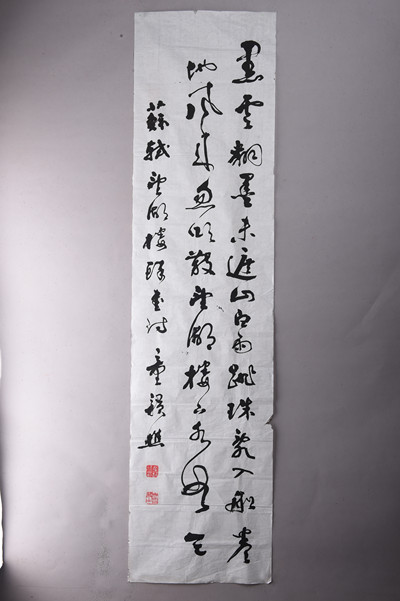 黑云翻墨未遮山白雨跳珠乱入船卷
地风来忽吹散望湖楼下水如天
苏轼望湖楼醉书诗 童韵樵